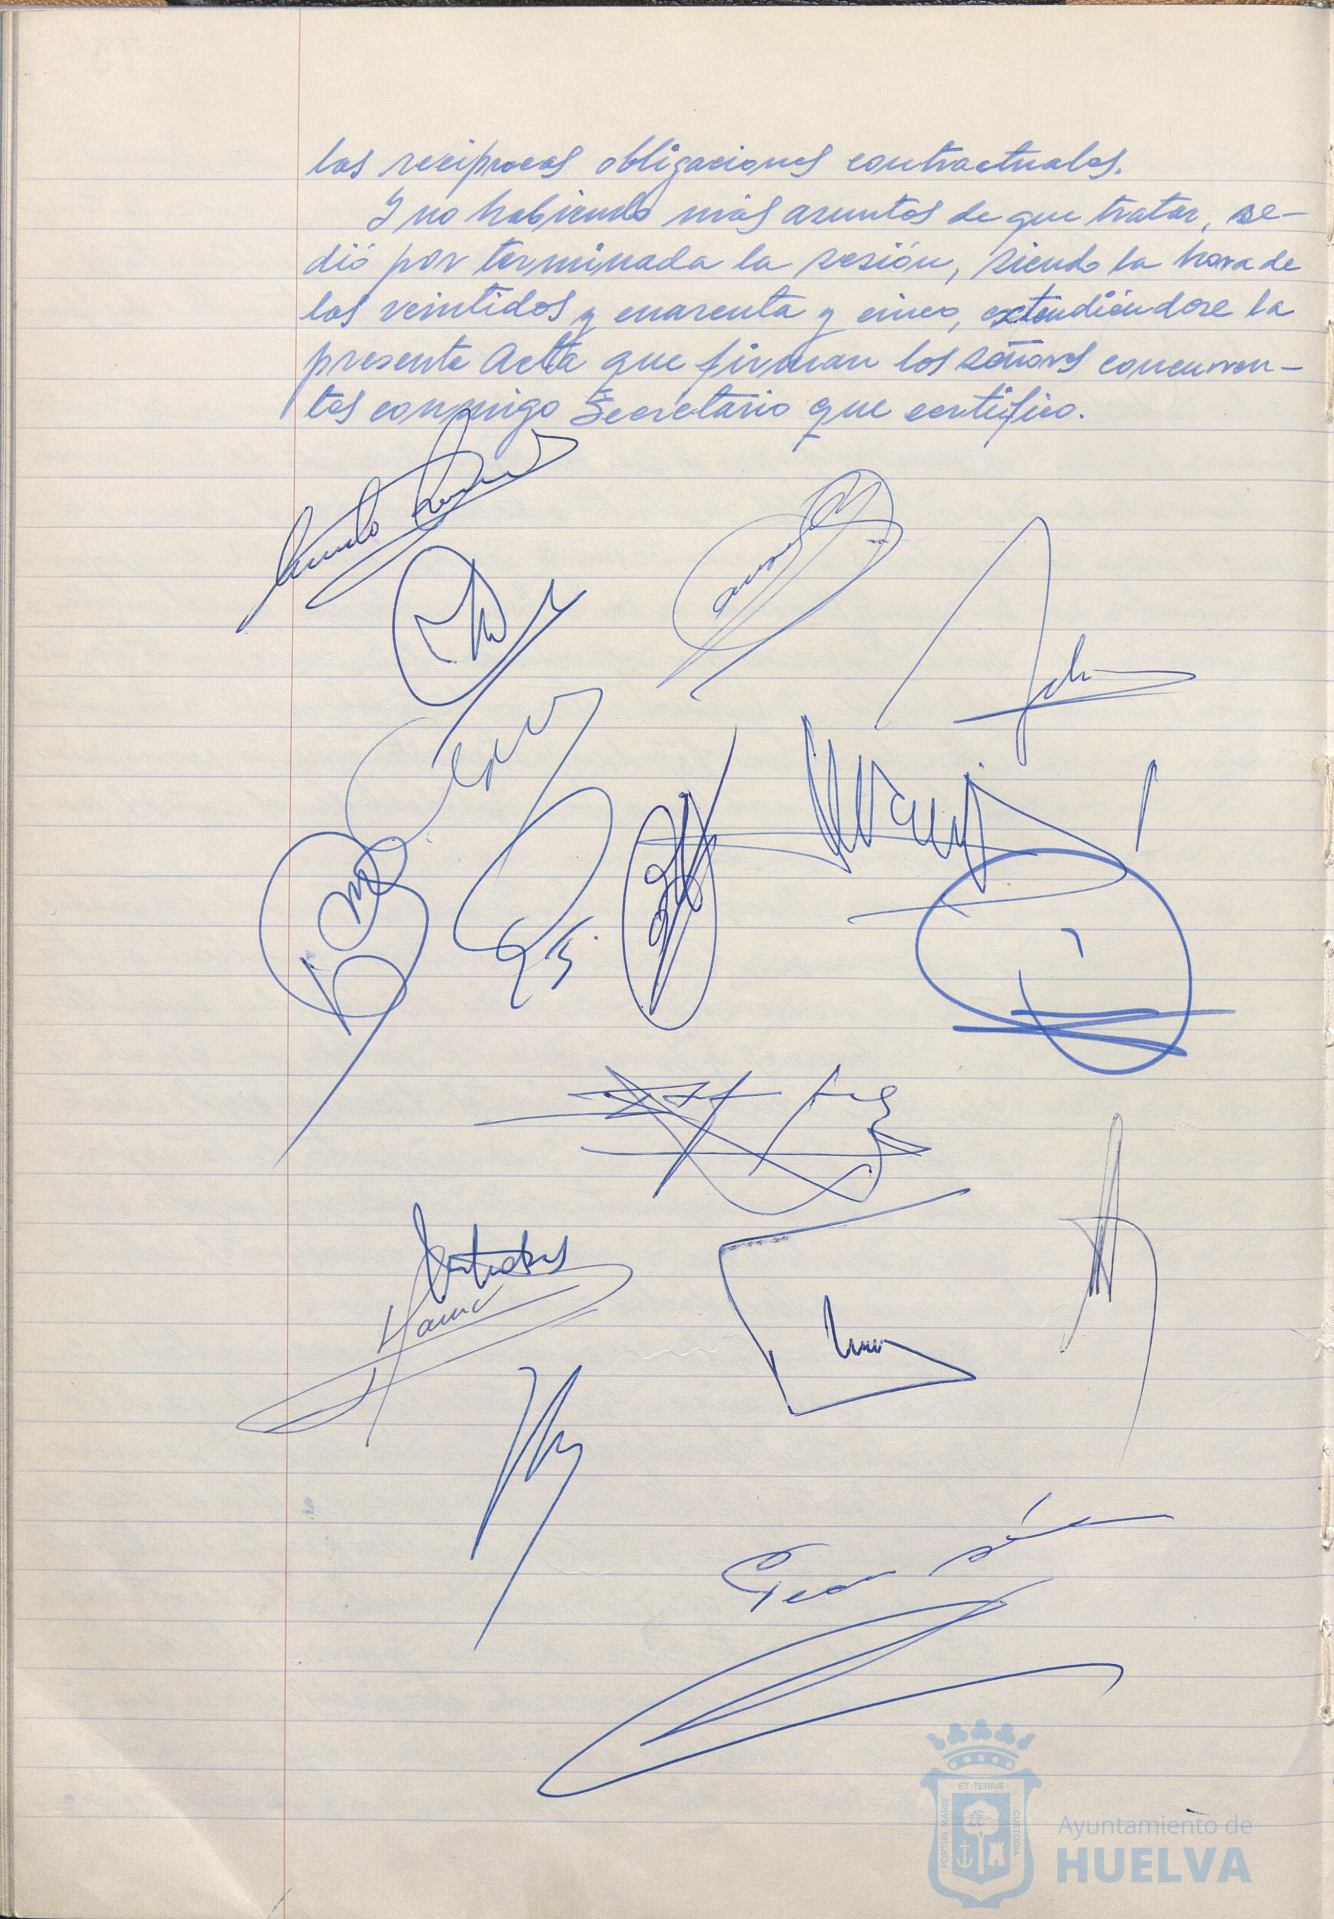 las recíprocas obligaciones contractuales.
Y no habiendo más asuntos de que tratar, se-
dió por terminada la sesión, siendo la hora de
las veintidos y cuarenta y cinco, extendiéndose la
presente Acta que firman los señores concurren-
tes conmigo Secretario que certifico.
ET TERRÆ
PORTUS MARIS
CUSTODIA
Ayuntamiento de
HUELVA